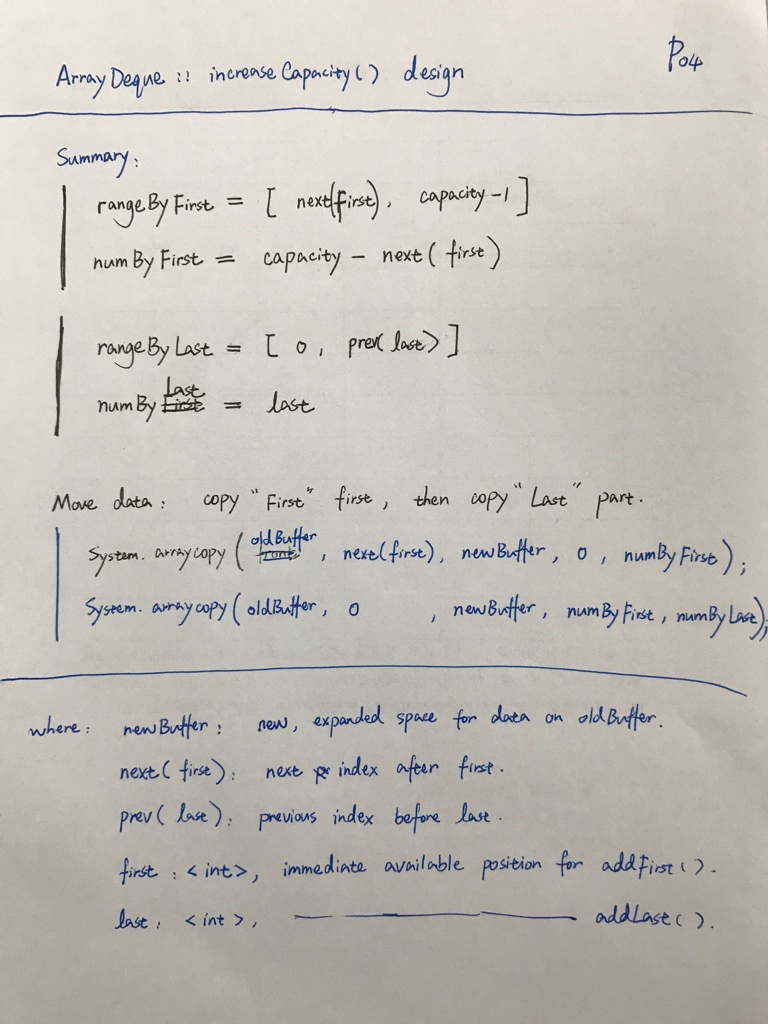 ArrayDeque :: increaseCapacity() design
P04
Summary:
rangeByFirst = [ next(first), capacity-1 ]
numByFirst = capacity - next( first )
rangeByLast = [ 0, prev( last ) ]
numBy Last = last
Move data: copy "First" first, then copy "Last" part.
System.arraycopy ( oldBuffer, next(first), newBuffer, 0, numByFirst );
System.arraycopy( oldBuffer, 0 , newBuffer, numByFirst, numByLast);
where: newBuffer: new, expanded space for data on oldBuffer.
next( first ): next index after first.
prev( last ): previous index before last.
first: <int>, immediate available position for addFirst().
last: <int>, ———————— addLast().